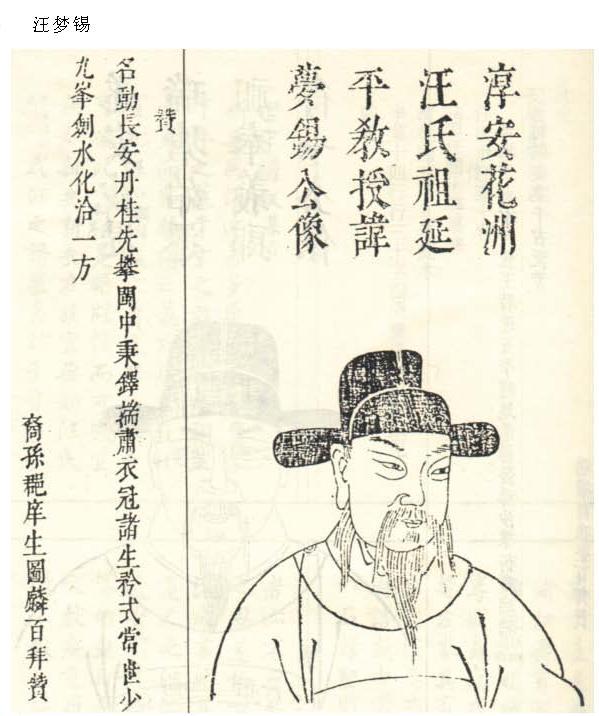 汪梦锡
淳安花洲
汪氏祖延
平教授諱
夢錫公像
贊
名動長安丹桂先攀閩中秉鐸端肅衣冠諸生矜式當世少
九峯劍水化洽一方
裔孫邑庠生圖麟百拜贊